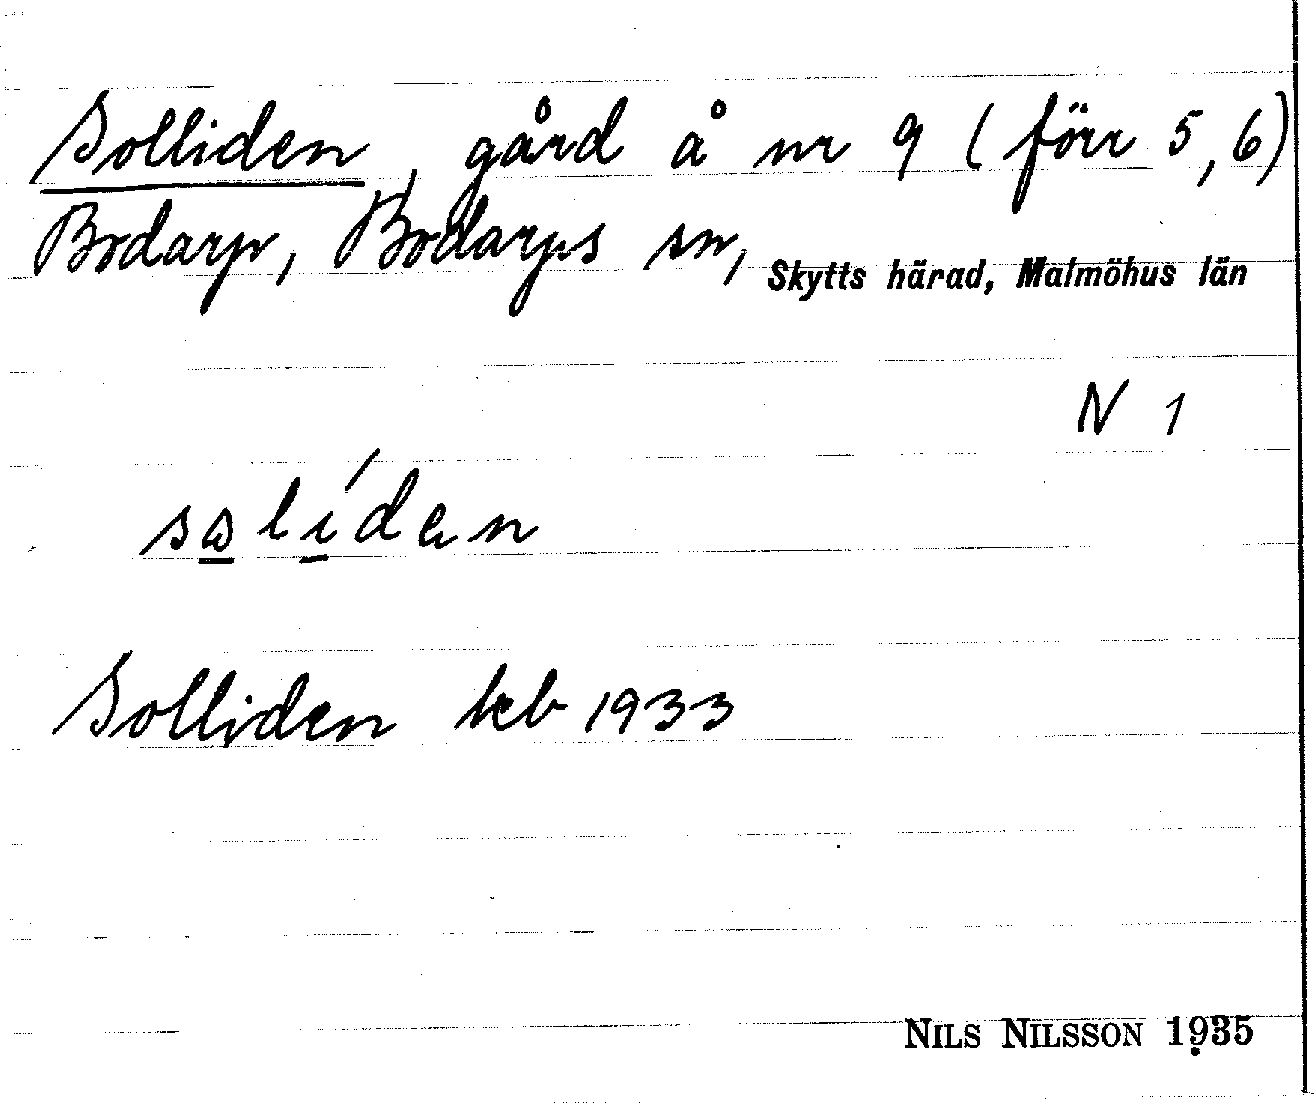 Solliden, gård å nr 9 (förr 5, 6)
Bodarp, Bodarps sn, Skytts härad, Malmöhus län
N 1
solíden
Solliden kcb 1933
NILS NILSSON 1935